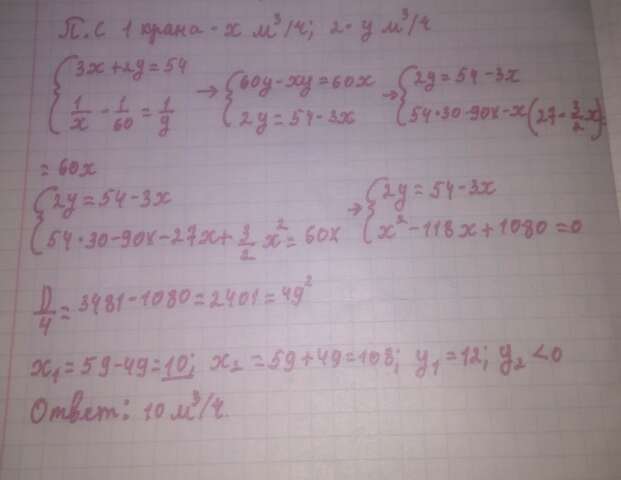 П.С 1 крана - x м³/ч; 2 - y м³/ч
{3x+2y=54 → {60y-xy=60x → {2y=54-3x
{1/x - 1/60 = 1/y {2y=54-3x {54·30-90x-x(27-3/2x)=
=60x
{2y=54-3x → {2y=54-3x
{54·30-90x-27x+3/2x²=60x {x²-118x+1080=0
D/4=3481-1080=2401=49²
x₁=59-49=10; x₂=59+49=108; y₁=12; y₂<0
Ответ: 10 м³/ч.